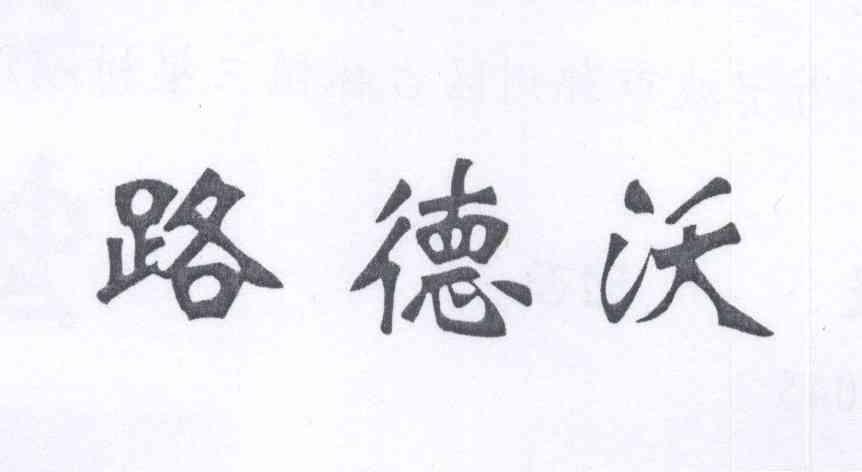 路德沃